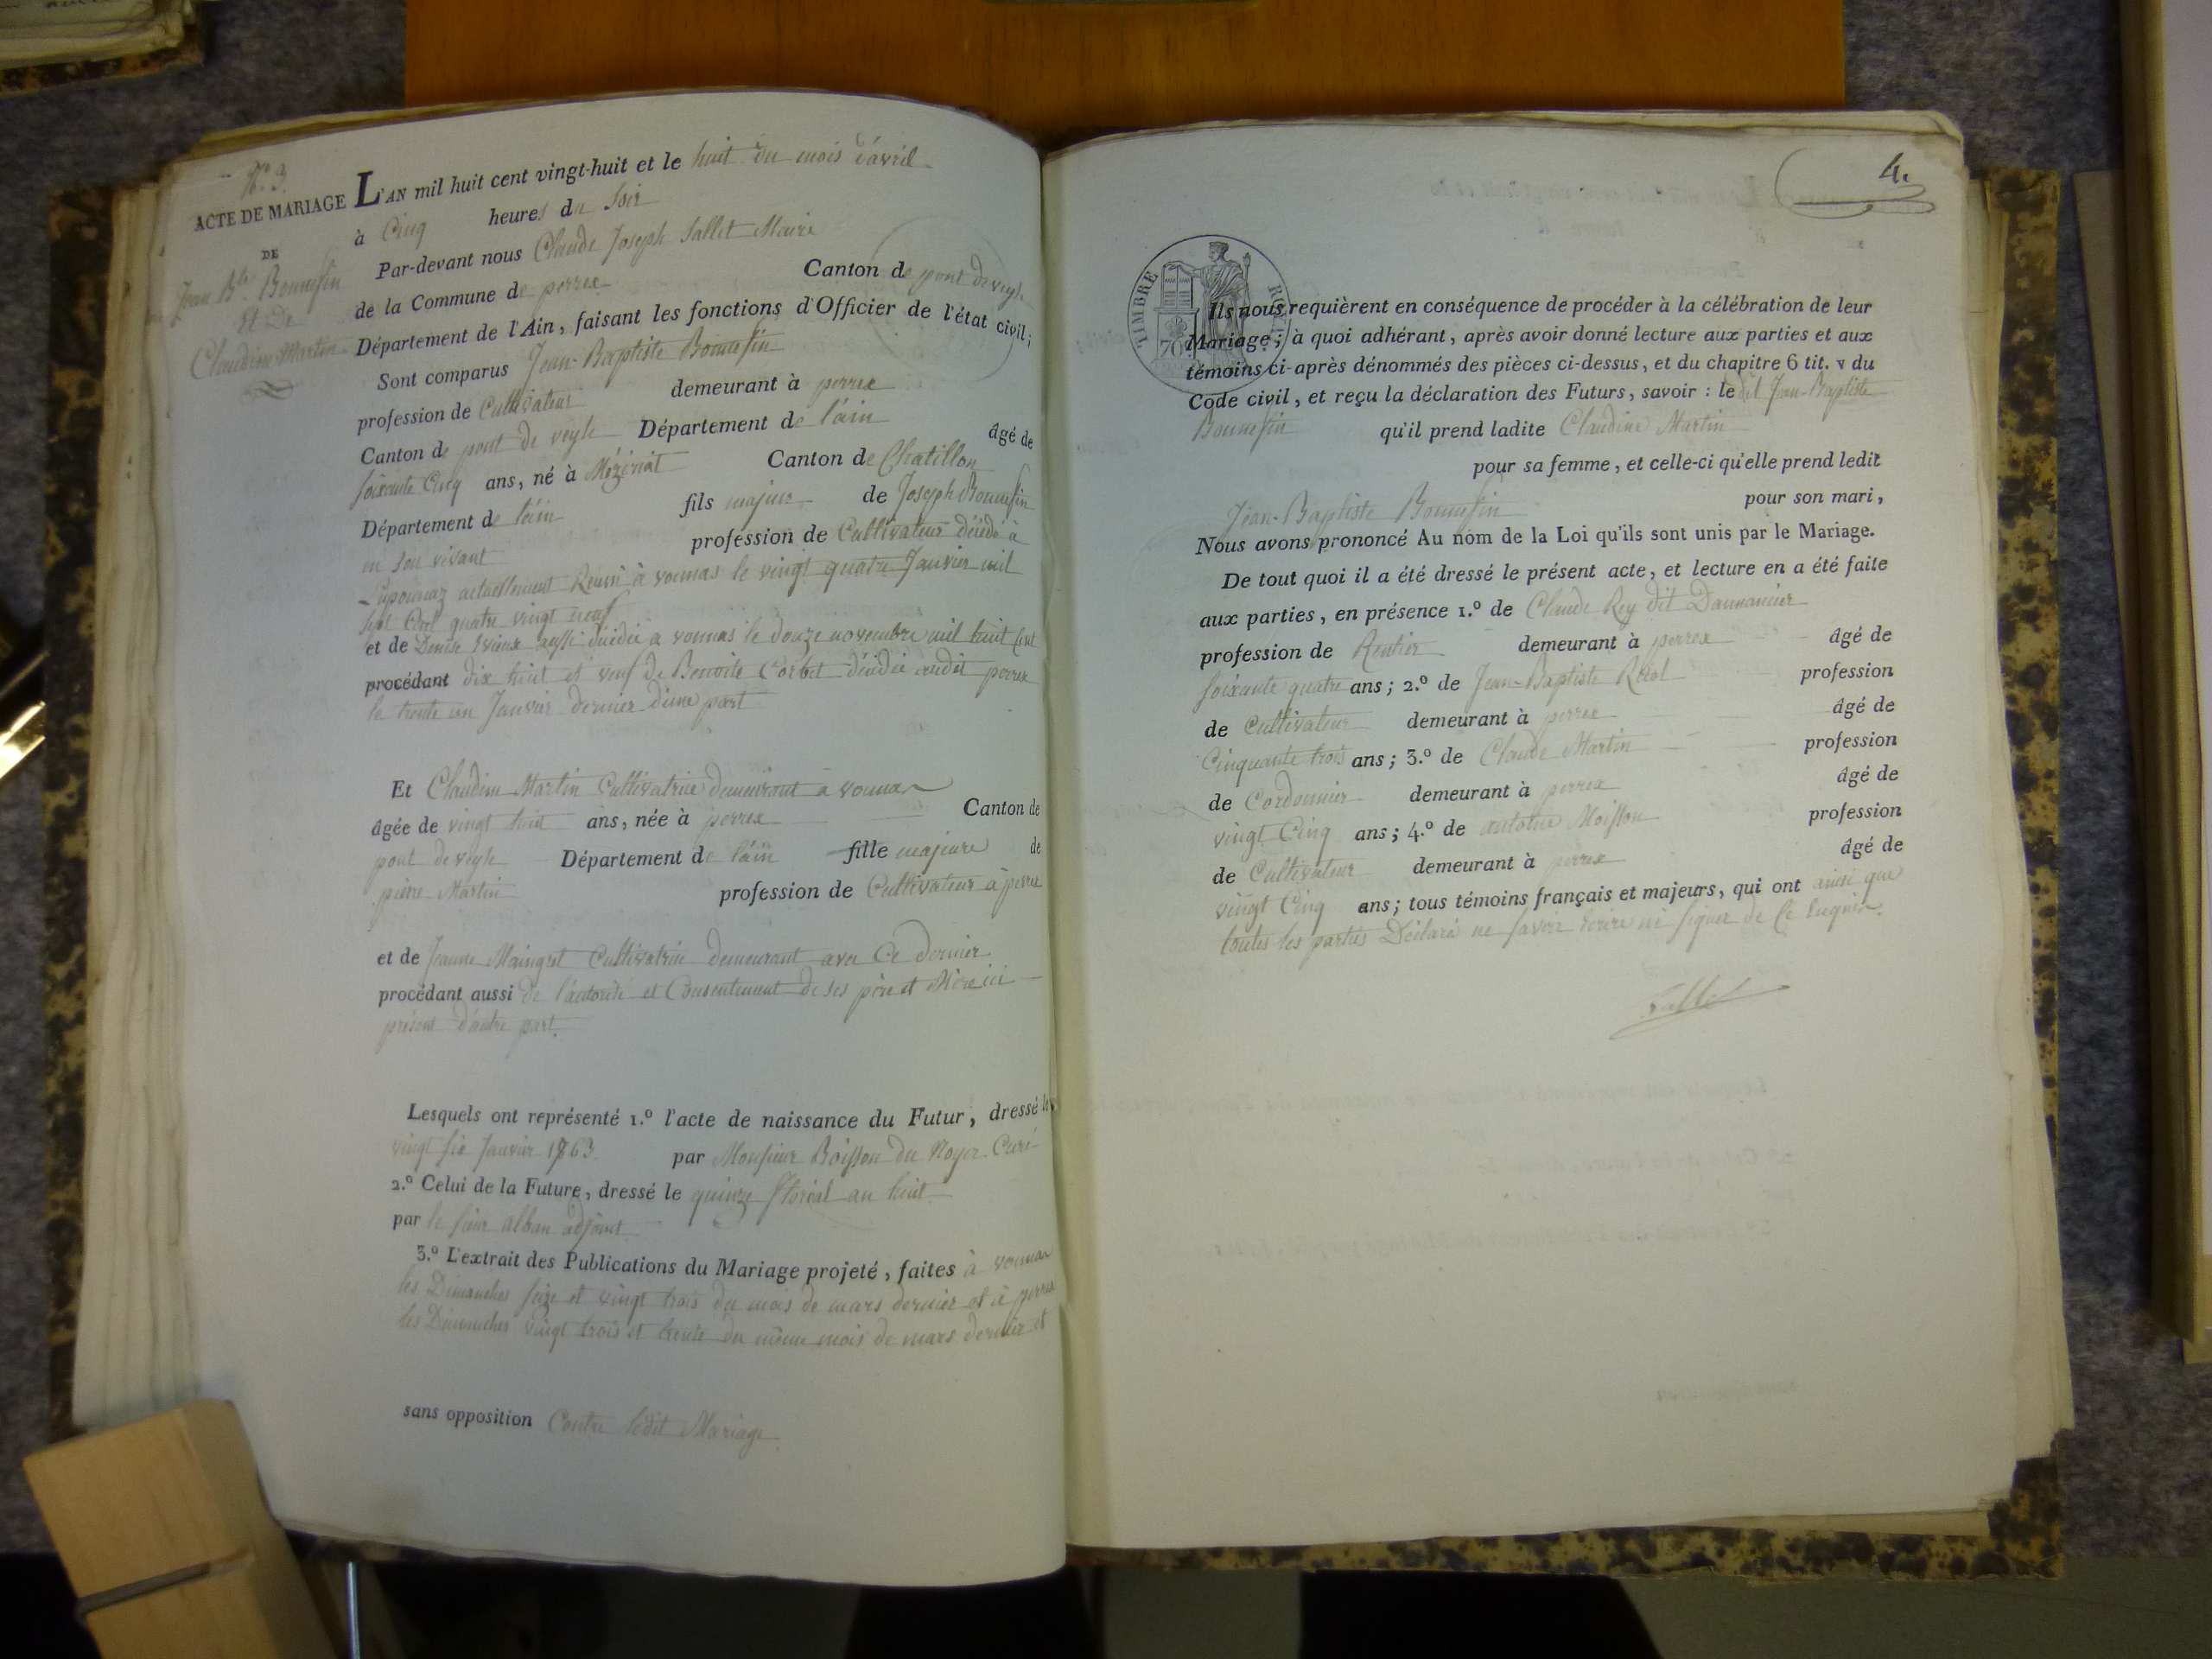 N.º 3.
ACTE DE MARIAGE
DE
Jean Bte Bonnefin
Et De
Claudine Martin
L'AN mil huit cent vingt-huit et le huit du mois d'avril
à Cinq heures du Soir
Par-devant nous Claude Joseph Sallet Maire
de la Commune de perrex Canton de pont de veyle
Département de l'Ain, faisant les fonctions d'Officier de l'état civil;
Sont comparus Jean-Baptiste Bonnefin
profession de Cultivateur demeurant à perrex
Canton de pont de veyle Département de l'ain âgé de
soixante Cinq ans, né à Mézériat Canton de Chatillon
Département de l'ain fils majeur de Joseph Bonnefin
en son vivant profession de Cultivateur décédé à
Luponnaz actuellement Réuni à vonnas le vingt quatre Janvier mil
sept Cent quatre vingt neuf
et de Denise vieux aussi décédée à vonnas le douze novembre mil huit Cent
procédant dix huit et veuf de Benoite Corbet décédée audit perrex
le trente un Janvier dernier d'une part
Et Claudine Martin Cultivatrice demeurant à vonnas
âgée de vingt huit ans, née à perrex Canton de
pont de veyle Département de l'ain fille majeure de
pierre Martin profession de Cultivateur à perrex
et de Jeanne Maingret Cultivatrice demeurant avec Ce dernier
procédant aussi de l'autorité et Consentement de ses père et Mère ici
présens d'autre part.
Lesquels ont représenté 1.º l'acte de naissance du Futur, dressé le
vingt six Janvier 1763 par Monsieur Boisson du Noyer Curé
2.º Celui de la Future, dressé le quinze floréal an huit
par le sieur alban adjoint
3.º L'extrait des Publications du Mariage projeté, faites à vonnas
les Dimanches seize et vingt trois du mois de mars dernier et à perrex
les Dimanches vingt trois et trente du même mois de mars dernier et
sans opposition Contre ledit Mariage
4.
TIMBRE ROYAL
70
Ils nous requièrent en conséquence de procéder à la célébration de leur
Mariage; à quoi adhérant, après avoir donné lecture aux parties et aux
témoins ci-après dénommés des pièces ci-dessus, et du chapitre 6 tit. v du
Code civil, et reçu la déclaration des Futurs, savoir : le dit Jean-Baptiste
Bonnefin qu'il prend ladite Claudine Martin
pour sa femme, et celle-ci qu'elle prend ledit
Jean-Baptiste Bonnefin pour son mari,
Nous avons prononcé Au nom de la Loi qu'ils sont unis par le Mariage.
De tout quoi il a été dressé le présent acte, et lecture en a été faite
aux parties, en présence 1.º de Claude Rey dit
profession de Rentier demeurant à perrex âgé de
soixante quatre ans; 2.º de Jean-Baptiste profession
de Cultivateur demeurant à perrex âgé de
Cinquante trois ans; 3.º de Claude Martin profession
de Cordonnier demeurant à perrex âgé de
vingt Cinq ans; 4.º de antoine Moisson profession
de Cultivateur demeurant à perrex âgé de
vingt Cinq ans; tous témoins français et majeurs, qui ont ainsi que
toutes les parties Déclaré ne savoir Ecrire ni signer de Ce Requis.
Sallet